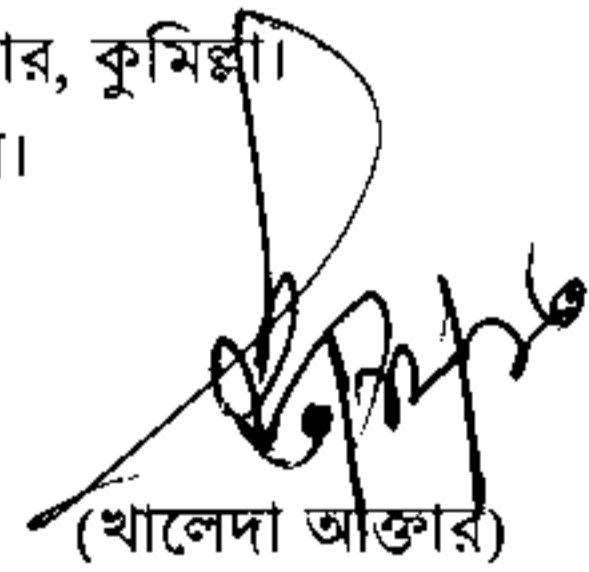 ার, কুমিল্লা।
।
(খালেদা আক্তার)